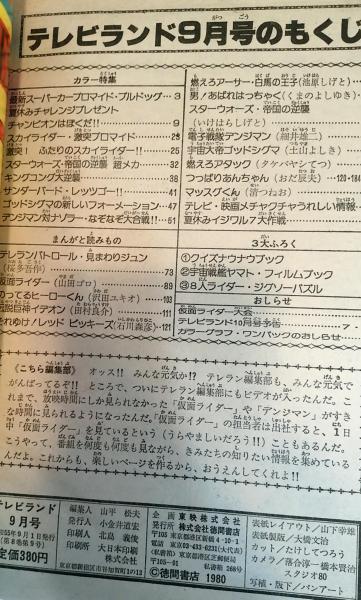 テレビランド9月号のもくじ
カラー特集
最新スーパーカーブロマイド・ブルドッグ… 3
夏休みチャレンジプレゼント
チャンピオンはぼくだ!! 9
スカイライダー・激突ブロマイド
激突! ふたりのスカイライダー!! 25
スターウォーズ・帝国の逆襲 超メカ 32
キングコング大逆襲 38
サンダーバード・レッツゴー!! 41
ゴッドシグマの新しいフォーメーション 47
デンジマン対ナゾラー・なぞなぞ大合戦!! 51
まんがと読みもの
テレランパトロール・見まわりジュン
(桜多吾作) 73
仮面ライダー(山田ゴロ) 89
のってるヒーローくん(沢田ユキオ) 103
伝説巨神イデオン(田村良介) 111
それゆけ!レッド ビッキーズ(石川森彦) 121
燃えろアーサー・白馬の王子(池原しげと)
男!あばれはっちゃく(くまのよしゆき)
スターウォーズ・帝国の逆襲
(いけはらしげと)
電子戦隊デンジマン(細井雄二)
宇宙大帝ゴッドシグマ(土山よしき)
燃えろアタック(タケバヤシてつ)
つっぱりあんちゃん(おだ辰夫) 120・184
マッスグくん(清つねお)
テレビ・映画メチャクチャうれしい情報
夏休みイジワル7大作戦
3大ふろく
①クイズナウナウブック
②宇宙戦艦ヤマト・フィルムブック
③8人ライダー・ジグソーパズル
おしらせ
仮面ライダー大会
テレビランド10月号予告 7
カラーグラフ・ワンパックのおしらせ
《こちら編集部》 オッス!! みんな元気か!? テレラン編集部も、みんな元気で
がんばってるぞ!! ところで、ついにテレラン編集部にもビデオが入ったんだ。こ
れまで、放映時間にしか見られなかった「仮面ライダー」や「デンジマン」がすき
な時間に見られるようになったんだ。「仮面ライダー」の担当者は出社すると、1日
中「仮面ライダー」を見ているという(うらやましいだろう!!)こともあるんだ。
こうやって、番組を何度も何度も見ながら、きみたちの知りたい情報を集めている
んだよ。これからも、楽しいページを作るから、おうえんしてくれよ!!
テレビランド
9月号
昭和55年9月1日発行
(第8巻第9号)
定価380円
編集人 山平 松夫
発行人 小金井道宏
印刷人 北島 義俊
印刷所 大日本印刷
株式会社
企画 東映株式会社
発行所 株式会社徳間書店
〒105 東京都港区新橋4-10-1
電話 東京03-433-6231(大代表)
©徳間書店 1980
表紙レイアウト/山下幸雄
表紙製版/大橋文治
カット/たけしてつろう
カメラ/落合淳一 橋本賀次
スタジオ80
写植・版下/バンアート